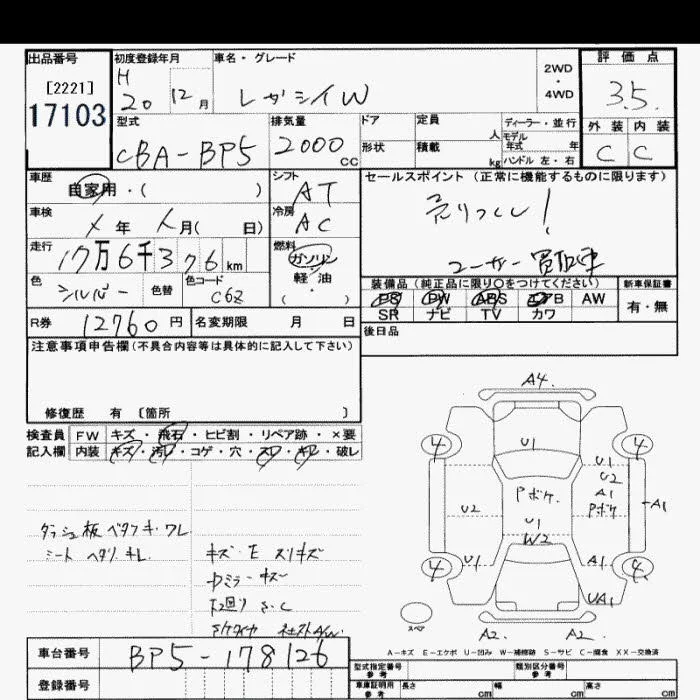 出品番号 初度登録年月 車名・グレード 2WD・4WD 評価点
[2221] H 20 12月 レガシイW 3.5
17103
型式 排気量 ドア 定員 人 ディーラー・並行 外装 内装
CBA-BP5 2000cc 形状 積載 kg モデル年式 年 C C
ハンドル 左・右
車歴 自家用・( ) シフト AT セールスポイント (正常に機能するものに限ります)
車検 年 月( 日) 冷房 AC 売りつくし!
走行 17万6千376km 燃料 ガソリン ユーザー買取車
軽・油
( ・ )
色 シルバー 色替 色コード C6Z 装備品 (純正品に限り○をつけてください) 新車保証書
PS PW ABS エアB AW 有・無
SR ナビ TV カワ
R券 12760円 名変期限 月 日 後日品
注意事項申告欄(不具合内容等は具体的に記入して下さい)
修復歴 有 〔箇所 〕
検査員 FW キズ・飛石・ヒビ割・リペア跡・×要
記入欄 内装 キズ・汚レ・コゲ・穴・スレ・キレ・破レ
ダッシュ板ベタツキ.ワレ
シート ヘタリ.キレ
キズ・E スリキズ
ミラーキズ
下廻り S.C
A4
4 U1 4
U1
U2
Pボケ A1
U2 Pボケ A1
U1
W2
4 U1 A1 4
UA1
スペア
A2 A2
A-キズ E-エクボ U-凹み W-補修跡 S-サビ C-腐食 XX-交換済
車台番号 BP5-178126
登録番号
型式指定番号 参考 類別区分番号 参考
車庫証明用 参考 長さ cm 幅 cm 高さ cm